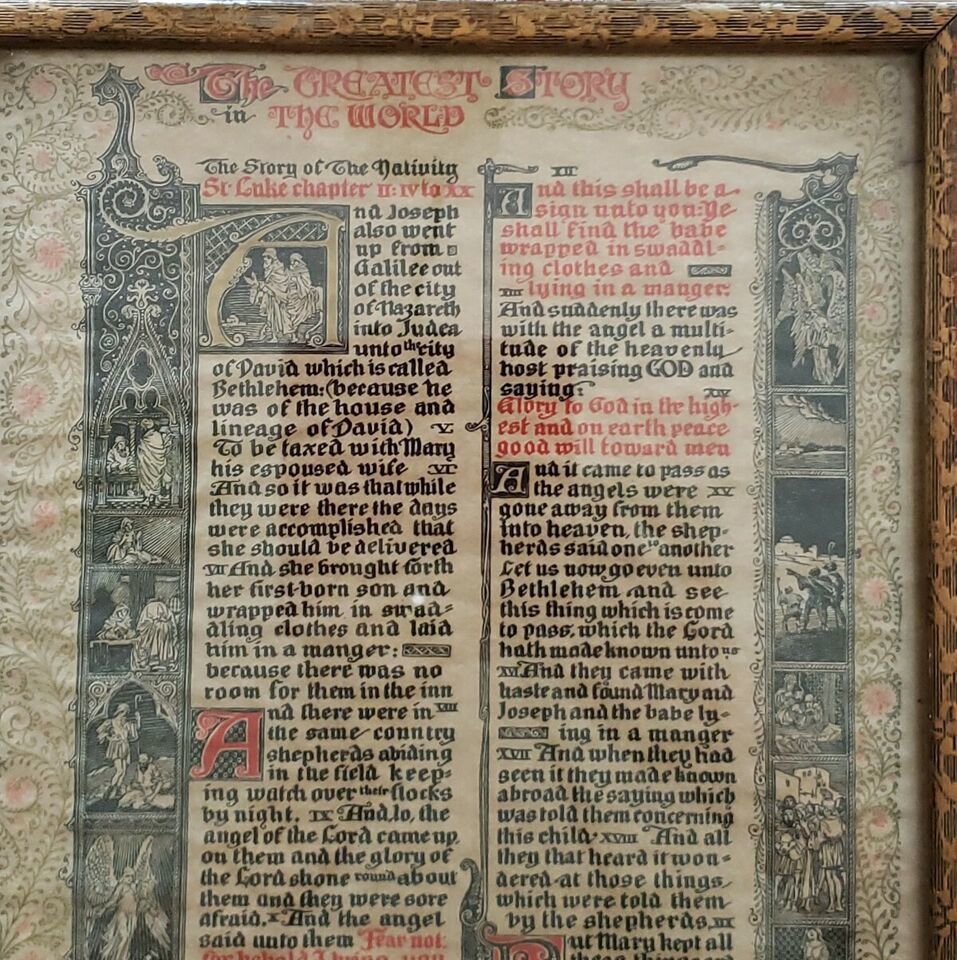 The GREATEST STORY
in THE WORLD
The Story of The Nativity
St Luke chapter II: IV to XX
And Joseph
also went
up from
Galilee out
of the city
of Nazareth
into Judea
unto the city
of David which is called
Bethlehem: (because he
was of the house and
lineage of David) V
To be taxed with Mary
his espoused wife VI
And so it was that while
they were there the days
were accomplished that
she should be delivered
VII And she brought forth
her first-born son and
wrapped him in swad=
dling clothes and laid
him in a manger:
because there was no
room for them in the inn
And there were in VIII
the same country
shepherds abiding
in the field keep=
ing watch over their flocks
by night. IX And lo, the
angel of the Lord came up
on them and the glory of
the Lord shone round about
them and they were sore
afraid. X And the angel
said unto them Fear not:
for behold I bring you
XII
And this shall be a
sign unto you: Ye
shall find the babe
wrapped in swaddl-
ing clothes and
XIII lying in a manger:
And suddenly there was
with the angel a multi-
tude of the heavenly
host praising GOD and
saying: XIV
Glory to God in the high-
est and on earth peace
good will toward men
And it came to pass as
the angels were XV
gone away from them
into heaven, the shep-
herds said one to another
Let us now go even unto
Bethlehem and see
this thing which is come
to pass, which the Lord
hath made known unto us
XVI And they came with
haste and found Mary and
Joseph and the babe ly-
ing in a manger
XVII And when they had
seen it they made known
abroad the saying which
was told them concerning
this child XVIII And all
they that heard it won=
dered at those things
which were told them
by the shepherds. XIX
But Mary kept all
these things